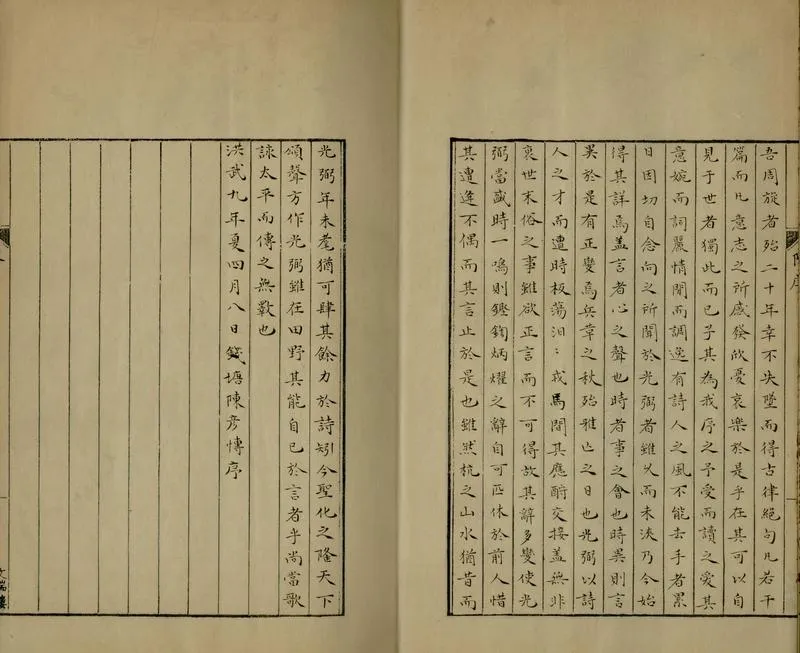 陳序
吾周旋者殆二十年幸不失墜而得古律絕句凡若干
篇而凡意志之所感發欣憂哀樂於是乎在其可以自
見于世者獨此而已子其為我序之予受而讀之愛其
意婉而詞麗情閒而調逸有詩人之風不能去手者累
日因切自念向之所聞於光弼者雖久而未浹乃今始
得其詳焉盖言者心之聲也時者事之會也時異則言
異於是有正變焉兵革之秋殆雅亡之日也光弼以詩
人之才而遭時板蕩汨:戎馬間其應酧交接盖無非
衰世末俗之事雖欲正言而不可得故其辭多變使光
弼當盛時一鳴則鏗鍧炳燿之辭自可匹休於前人惜
其遭逢不偶而其言止於是也雖然杭之山水猶昔而
光弼年未耄猶可肆其餘力於詩矧今聖化之隆天下
頌聲方作光弼雖在田野其能自已於言者乎尚當歌
詠太平而傳之無斁也
洪武九年夏四月八日錢塘陳彥博序
文瑞樓